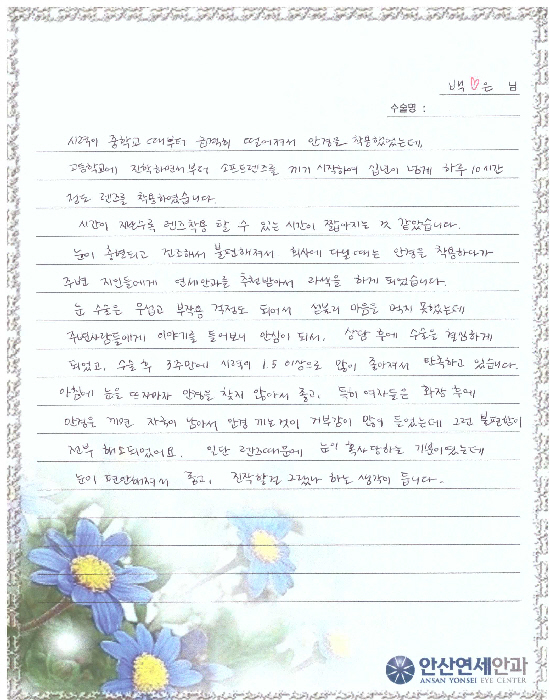 백♡은 님
수술명 :
시력이 중학교 때부터 급격히 떨어져서 안경을 착용했었는데,
고등학교에 진학하면서부터 소프트렌즈를 끼기 시작하여 십년이 넘게 하루 10시간
정도 렌즈를 착용하였습니다.
시간이 지날수록 렌즈착용 할 수 있는 시간이 짧아지는 것 같았습니다.
눈이 충혈되고 건조해서 불편해져서 회사에 다닐때는 안경을 착용하다가
주변 지인들에게 연세안과를 추천받아서 라섹을 하게 되었습니다.
눈 수술은 무섭고 부작용 걱정도 되어서 섣불리 마음을 먹지 못했는데
주변사람들에게 이야기를 들어보니 안심이 되서, 상담 후에 수술을 결심하게
되었고, 수술 후 3주만에 시력이 1.5 이상으로 많이 좋아져서 만족하고 있습니다.
아침에 눈을 뜨자마자 안경을 찾지 않아서 좋고, 특히 여자들은 화장 후에
안경을 끼면 자국이 남아서 안경 끼는것이 거부감이 많이 들었는데 그런 불편함이
전부 해소되었어요. 일단 렌즈때문에 눈이 혹사당하는 기분이었는데
눈이 편안해져서 좋고, 진작할걸 그랬나 하는 생각이 듭니다.
안산연세안과
ANSAN YONSEI EYE CENTER